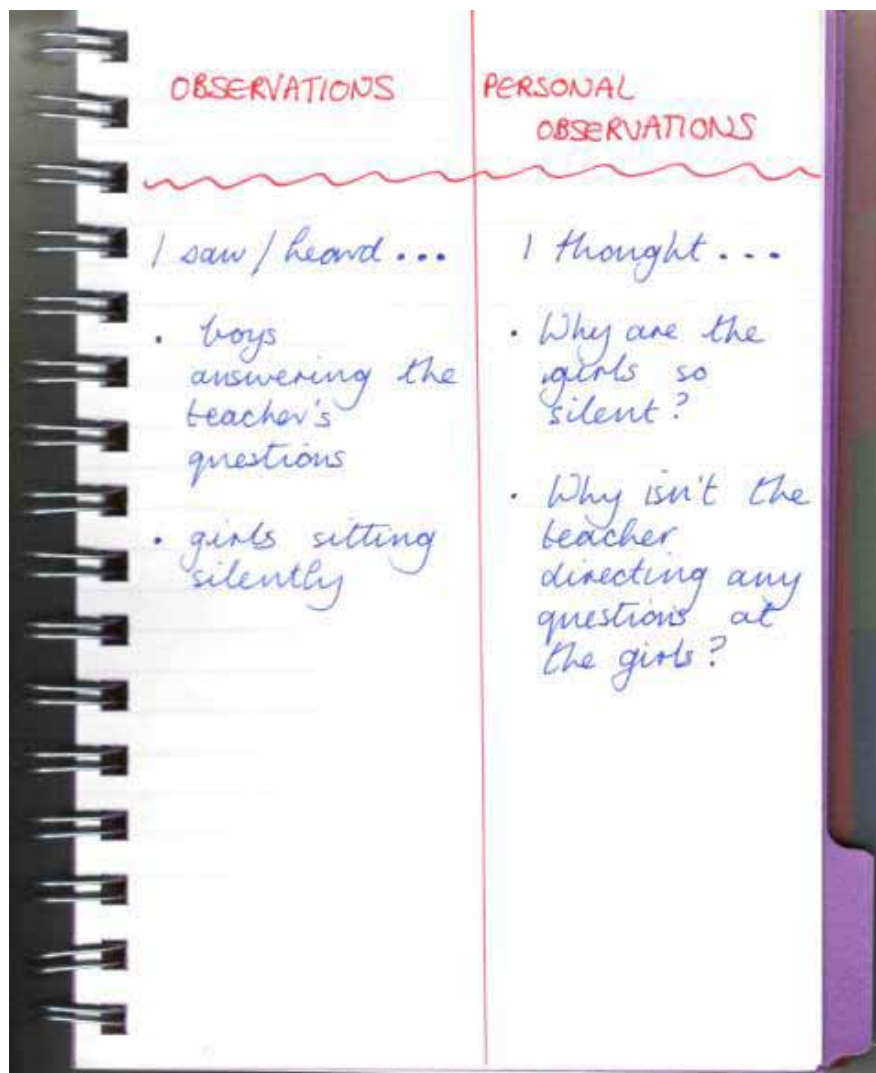 OBSERVATIONS
I saw / heard...
· boys
answering the
teacher's
questions
· girls sitting
silently
PERSONAL
OBSERVATIONS
I thought...
· Why are the
girls so
silent?
· Why isn't the
teacher
directing any
questions at
the girls?